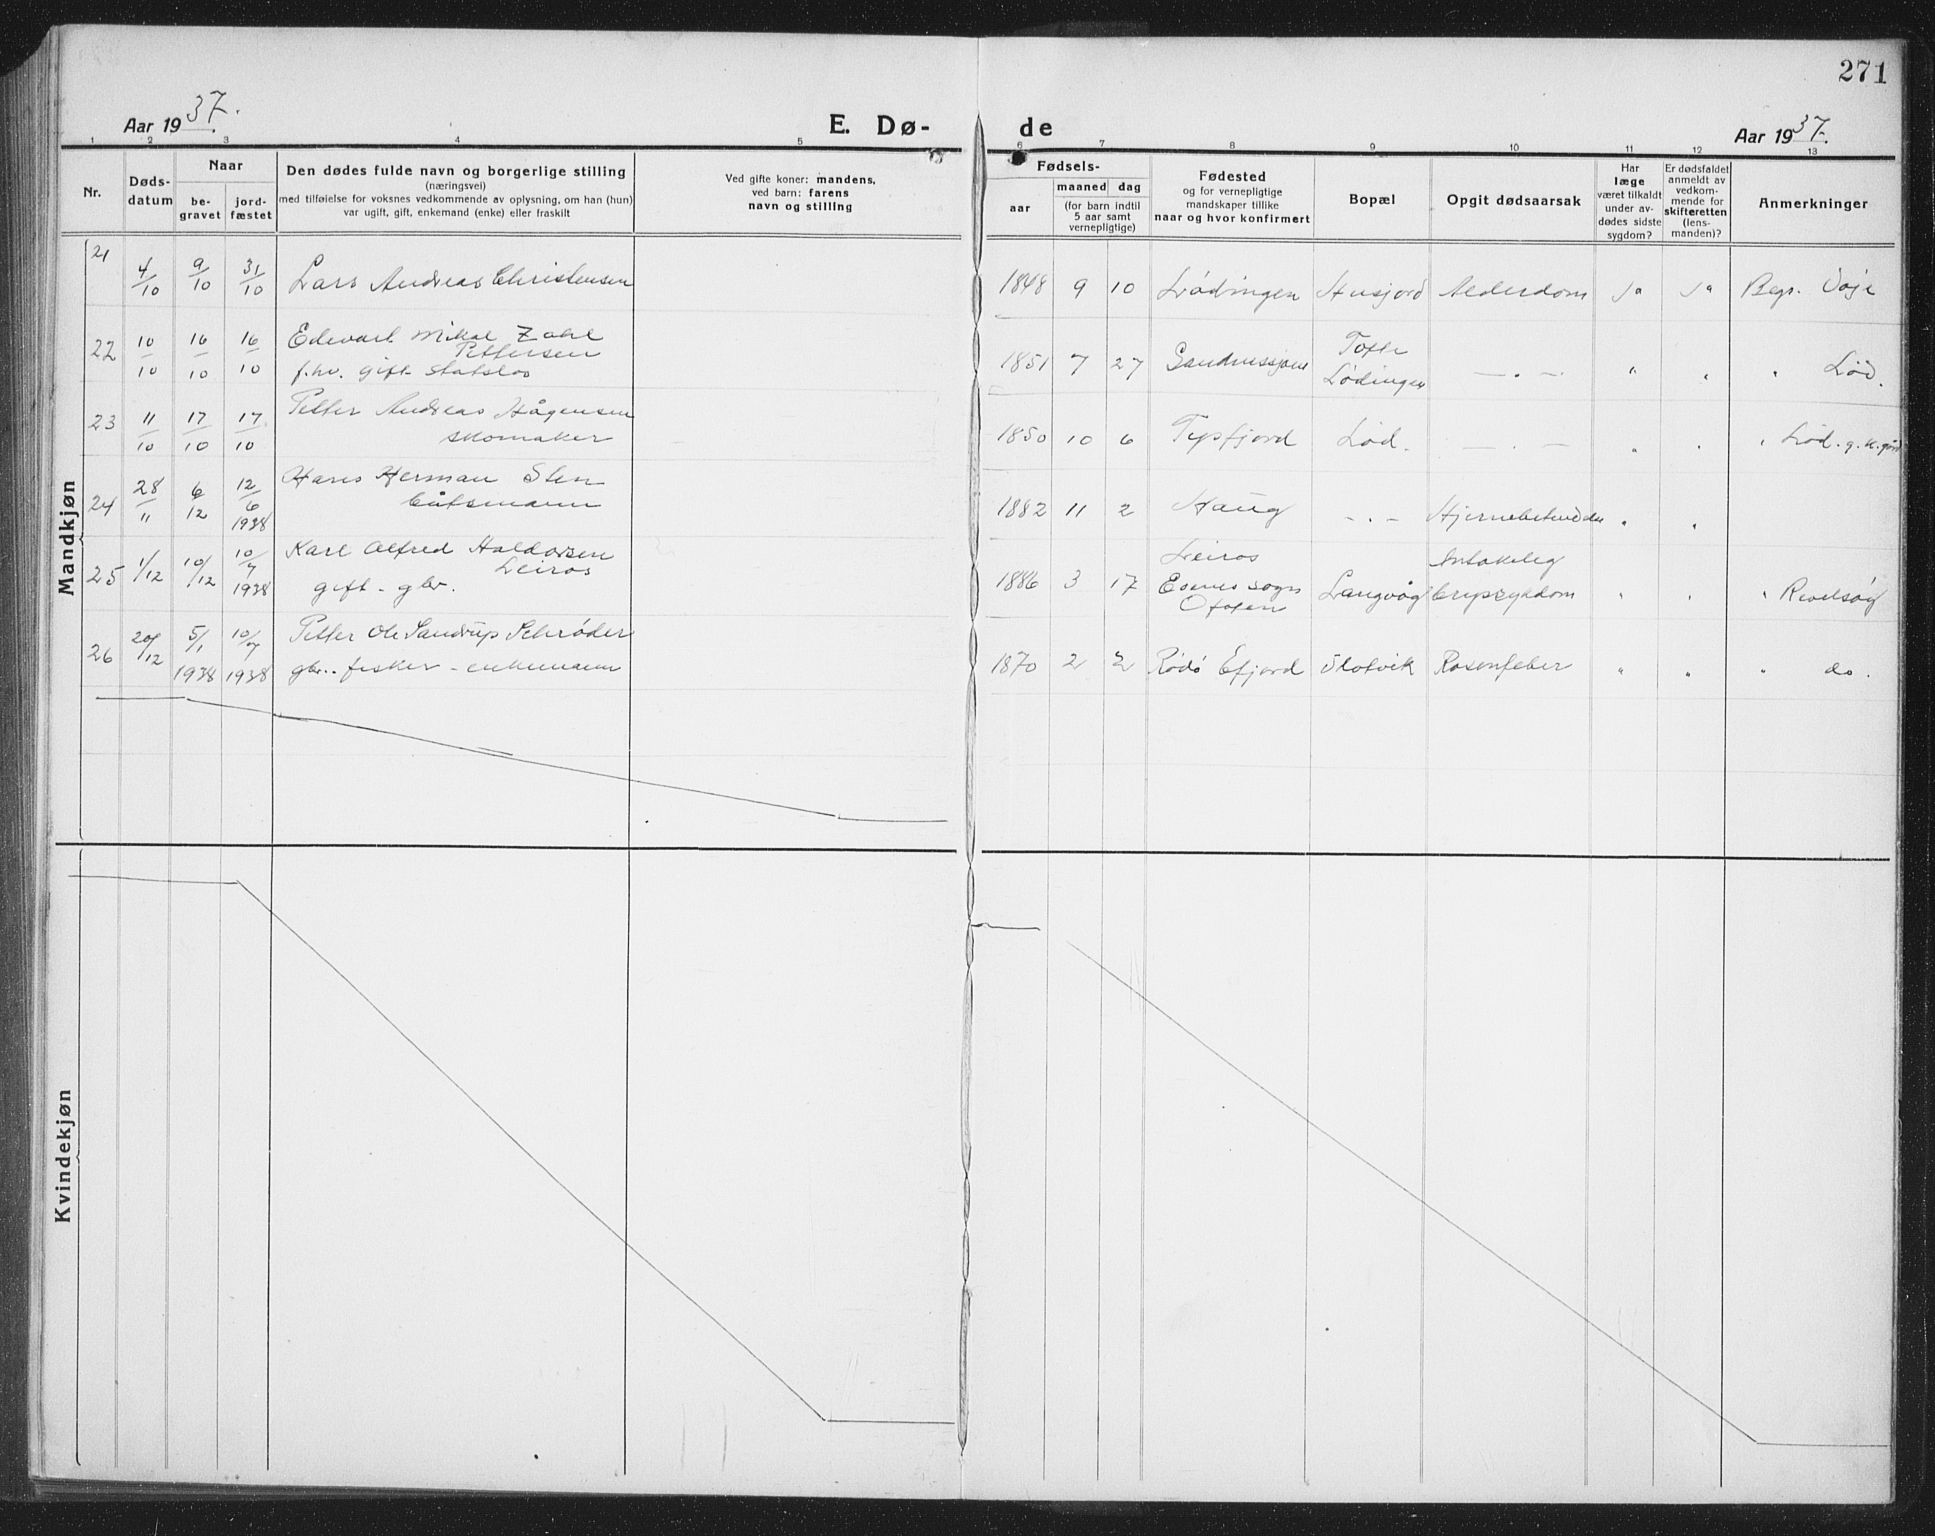 271
Aar 1937.
E. Dø-
de
Aar 1937.
1 2 3 4 5 6 7 8 9 10 11 12 13
Nr.
Døds-
datum
Naar
be-
gravet
jord-
fæstet
Den dødes fulde navn og borgerlige stilling
(næringsvei)
med tilføielse for voksnes vedkommende av oplysning, om han (hun)
var ugift, gift, enkemand (enke) eller fraskilt
Ved gifte koner: mandens,
ved barn: farens
navn og stilling
Fødsels-
aar
maaned dag
(for barn indtil
5 aar samt
vernepligtige)
Fødested
og for vernepligtige
mandskaper tillike
naar og hvor konfirmert
Bopæl
Opgit dødsaarsak
Har
læge
været tilkaldt
under av-
dødes sidste
sygdom?
Er dødsfaldet
anmeldt av
vedkom-
mende for
skifteretten
(lens-
manden)?
Anmerkninger
Mandkjøn
21 4/10 9/10 31/10 Lars Andreas Christensen 1848 9 10 Lødingen Husjord Alderdom Ja Ja Begr.
22 10/10 16/10 16/10 Edvart Mikal Zahl
Pettersen
f.hv. gift 1851 7 27 Tofte
Lødingen — . — " " " Lød.
23 11/10 17/10 17/10 Petter Andreas Hågensen
skomaker 1850 10 6 Tysfjord Lød. — . — " " " Lød. g. k.
24 28/11 6/12 12/6 1938 Hans Herman Sten
båtsmann 1882 11 2 Haug - . - " "
25 1/12 10/12 10/7 1938 Karl Alfred Haldorsen
Leiros
gift - gbr. 1886 3 17 Leiros
Evenes sogn
Ofoten Langvåg " " "
26 20/12 5/1 1938 10/7 1938 Petter Ole Sandrup Schrøder
gbr. fisker - enkemann 1870 2 2 Rødø Efjord Slotvik Rosenfeber " " " do.
Kvindekjøn